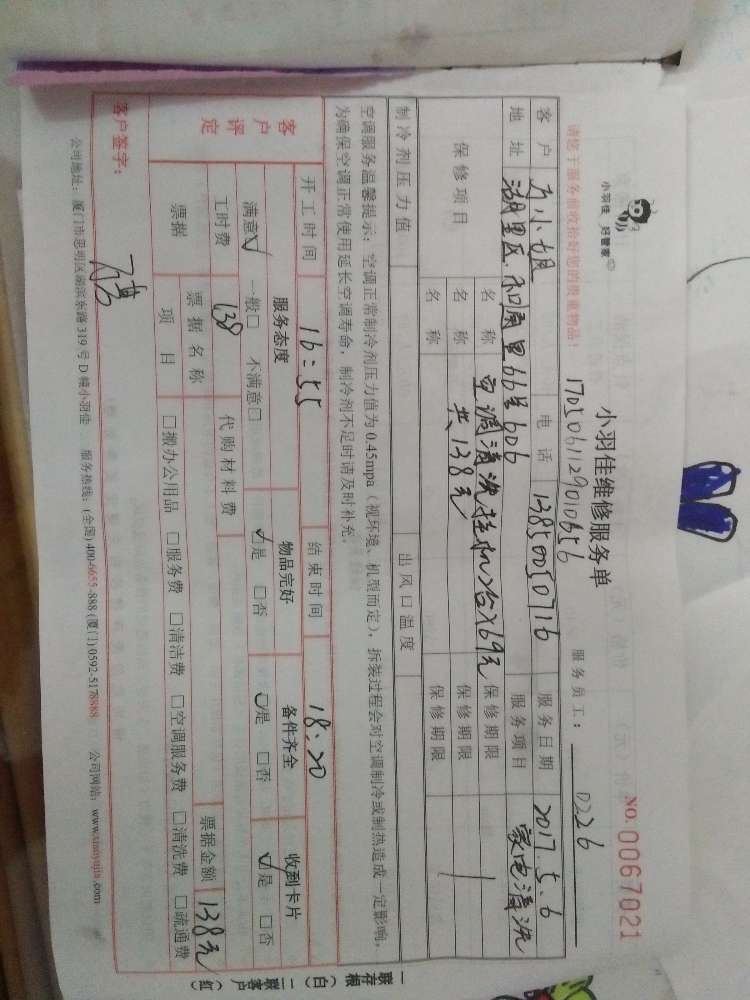 小羽佳 好管家
小羽佳维修服务单
NO. 0067021
1705061129010656
服务员工: 0226
请您于服务前收拾好您的贵重物品!
客户 小姐 电话 13850050716 服务日期 2017.5.6
地址 湖里区 和通里66号606 服务项目 家电清洗
保修项目 名称 空调清洗挂机2台×69元 保修期限
名称 共138元 保修期限
名称 保修期限
制冷剂压力值 出风口温度
空调服务温馨提示:空调正常制冷剂压力值为0.45mpa(视环境、机型而定),拆装过程会对空调制冷或制热造成一定影响,
为确保空调正常使用延长空调寿命,制冷剂不足时请及时补充。
开工时间 16:55 结束时间 18:20
客户评定 服务态度 物品完好 备件齐全 收到卡片
满意☑ 一般□ 不满意□ ☑是 □否 ☑是 □否 ☑是 □否
工时费 138 代购材料费 票据金额 138元
票据 票据名称
项目 □搬办公用品 □服务费 □清洁费 □空调服务费 □清洗费 □疏通费
客户签字:
公司地址:厦门市思明区湖滨东路319号D幢小羽佳 服务热线:(全国)400-6655-888(厦门)0592-5178888 公司网站:www.xiaoyujia.com
一联存根(白) 二联客户(红)